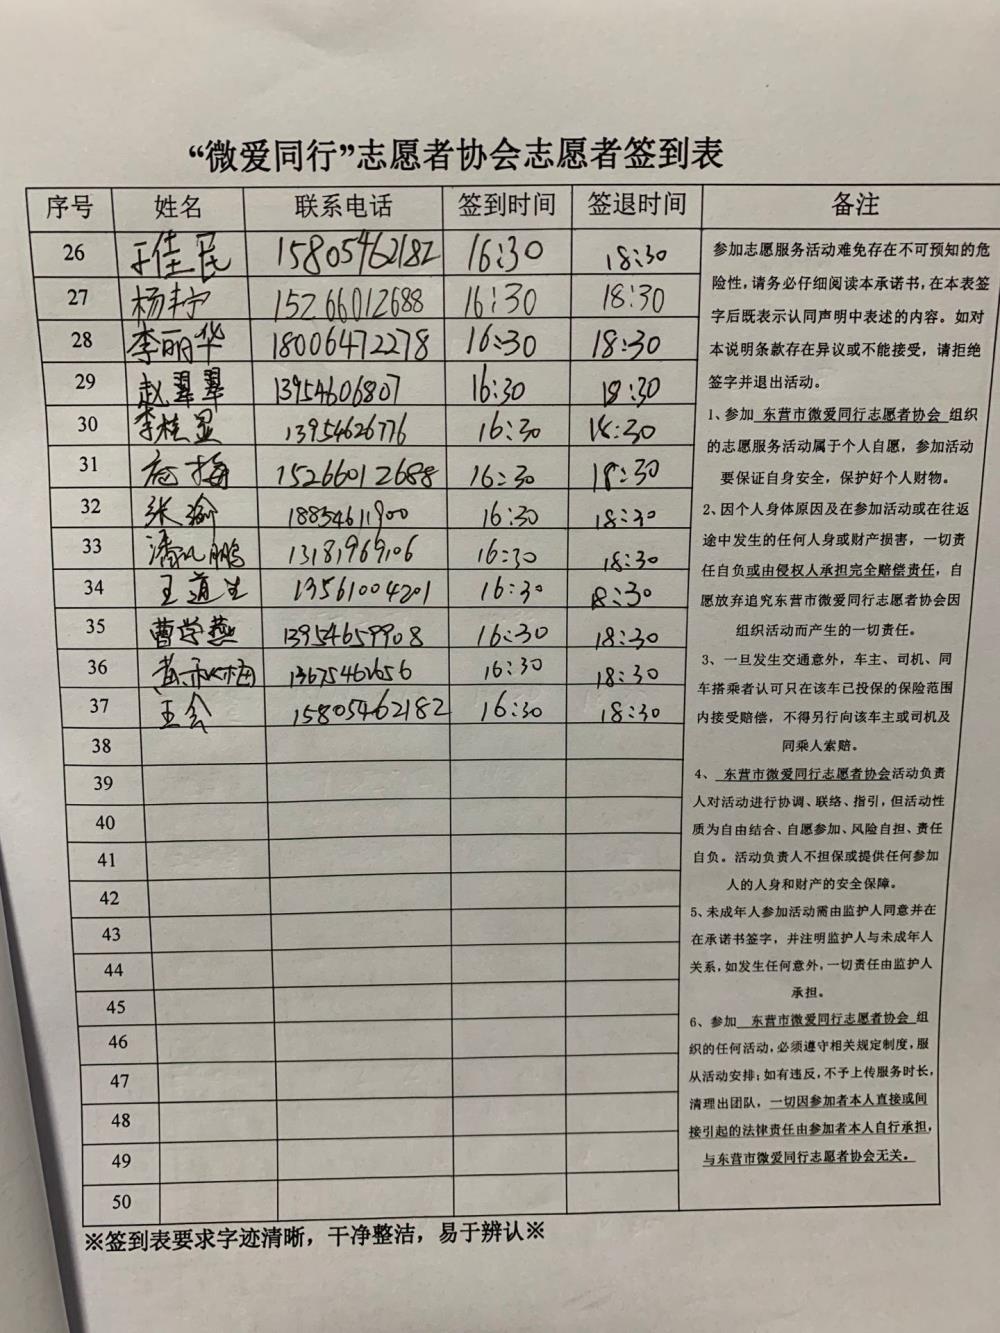 “微爱同行”志愿者协会志愿者签到表
序号 姓名 联系电话 签到时间 签退时间 备注
26 于佳民 15805462182 16:30 18:30
27 杨卉宁 15266012688 16:30 18:30
28 李丽华 18006472278 16:30 18:30
29 赵翠翠 13954606807 16:30 18:30
30 李桂显 13954626776 16:30 18:30
31 梅 15266012688 16:30 18:30
32 张瑜 18854611900 16:30 18:30
33 潘 鹏 13181969106 16:30 18:30
34 王道生 13561004201 16:30 18:30
35 曹学燕 13954659908 16:30 18:30
36 黄秋梅 13675462656 16:30 18:30
37 王会 15805462182 16:30 18:30
38
39
40
41
42
43
44
45
46
47
48
49
50
参加志愿服务活动难免存在不可预知的危
险性，请务必仔细阅读本承诺书，在本表签
字后既表示认同声明中表述的内容。如对
本说明条款存在异议或不能接受，请拒绝
签字并退出活动。
1、参加 东营市微爱同行志愿者协会 组织
的志愿服务活动属于个人自愿，参加活动
要保证自身安全，保护好个人财物。
2、因个人身体原因及在参加活动或在往返
途中发生的任何人身或财产损害，一切责
任自负或由侵权人承担完全赔偿责任，自
愿放弃追究东营市微爱同行志愿者协会因
组织活动而产生的一切责任。
3、一旦发生交通意外，车主、司机、同
车搭乘者认可只在该车已投保的保险范围
内接受赔偿，不得另行向该车主或司机及
同乘人索赔。
4、 东营市微爱同行志愿者协会活动负责
人对活动进行协调、联络、指引，但活动性
质为自由结合、自愿参加、风险自担、责任
自负。活动负责人不担保或提供任何参加
人的人身和财产的安全保障。
5、未成年人参加活动需由监护人同意并在
在承诺书签字，并注明监护人与未成年人
关系，如发生任何意外，一切责任由监护人
承担。
6、参加 东营市微爱同行志愿者协会 组
织的任何活动，必须遵守相关规定制度，服
从活动安排；如有违反，不予上传服务时长，
清理出团队，一切因参加者本人直接或间
接引起的法律责任由参加者本人自行承担，
与东营市微爱同行志愿者协会无关。
※签到表要求字迹清晰，干净整洁，易于辨认※